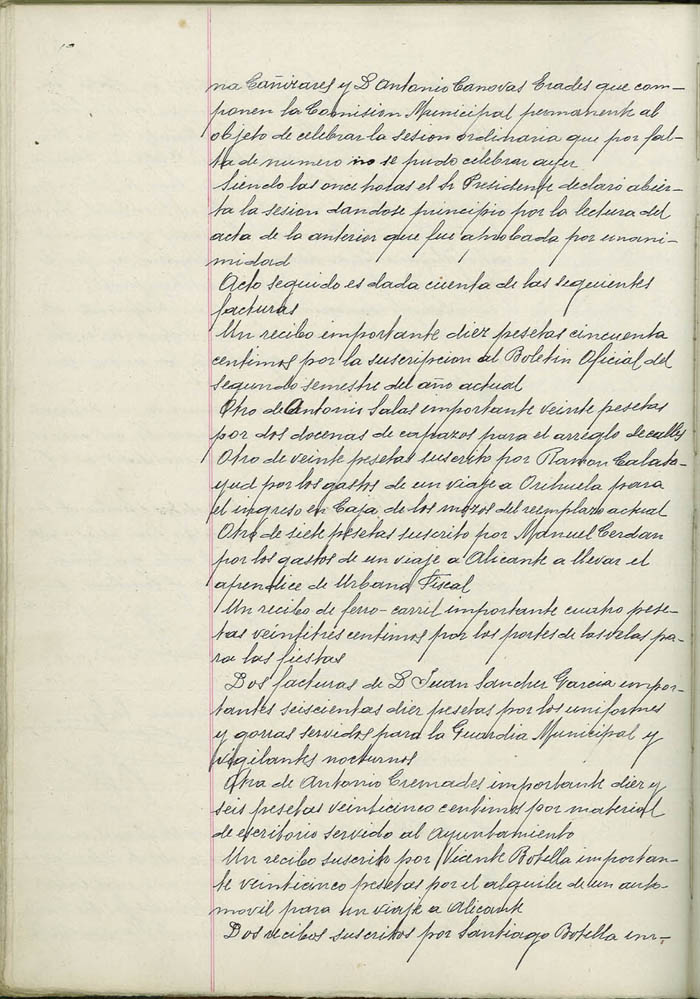 na Cañizares y D Antonio Canovas Erades que com-
ponen la Comision Municipal permanente al
objeto de celebrar la sesion ordinaria que por fal-
ta de numero no se pudo celebrar ayer
Siendo las once horas el Sr Presidente declaró abier-
ta la sesion dandose principio por la lectura del
acta de la anterior que fue aprobada por unani-
midad
Acto seguido es dada cuenta de las seguientes
facturas
Un recibo importante diez pesetas cincuenta
centimos por la suscripcion al Boletin Oficial del
segundo semestre del año actual
Otro de Antonio Salas importante veinte pesetas
por dos docenas de capazos para el arreglo de calles
Otro de veinte pesetas suscrito por Ramon Calata-
yud por los gastos de un viaje a Orihuela para
el ingreso en Caja de los mozos del reemplazo actual
Otro de siete pesetas suscrito por Manuel Cerdan
por los gastos de un viaje a Alicante a llevar el
apendice de Urbana Fiscal
Un recibo de ferro-carril importante cuatro pese-
tas veintitres centimos por los portes de las velas pa-
ra las fiestas
Dos facturas de D Juan Sanchez Garcia impor-
tantes seiscientas diez pesetas por los uniformes
y gorras servidos para la Guardia Municipal y
vigilantes nocturnos
Otra de Antonio Cremades importante diez y
seis pesetas veinticinco centimos por material
de escritorio servido al Ayuntamiento
Un recibo suscrito por Vicente Botella importan-
te veinticinco pesetas por el alquiler de un auto-
movil para un viaje a Alicante
Dos recibos suscritos por Santiago Botella im-